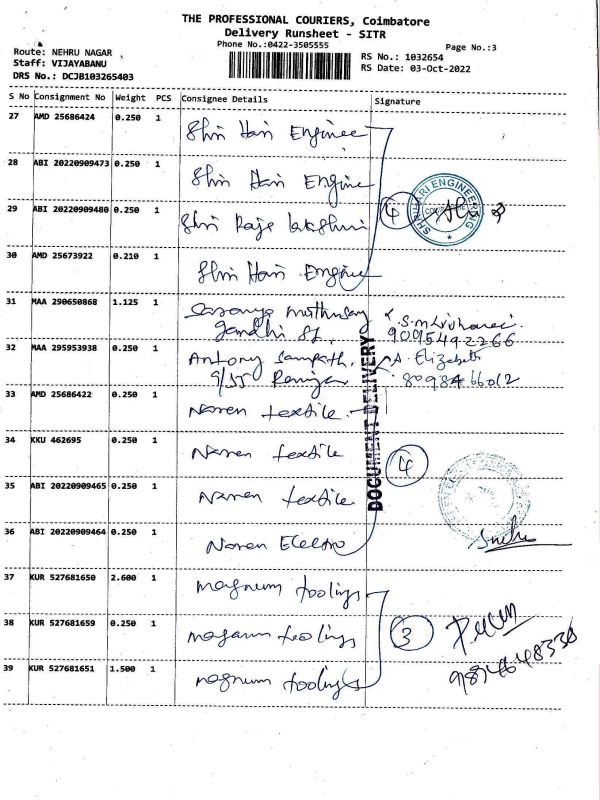 THE PROFESSIONAL COURIERS, Coimbatore
Delivery Runsheet - SITR
Phone No.:0422-3505555
Page No.:3
Route: NEHRU NAGAR
Staff: VIJAYABANU
DRS No.: DCJB103265403
RS No.: 1032654
RS Date: 03-Oct-2022
S No Consignment No Weight PCS Consignee Details Signature
27 AMD 25686424 0.250 1 Shri Hari Enginee
28 ABI 20220909473 0.250 1 Shri Hari Engine
29 ABI 20220909480 0.250 1 Shri Raja lakshmi
4
SHRI HARI ENGINEERING
30 AMD 25673922 0.210 1 Shri Hari Engine
31 MAA 290650868 1.125 1 Saranya muthusamy
gandhi St,
9095492266
32 MAA 295953938 0.250 1 Antony Sampath,
9/55
A. Elizabeth
8098466012
DOCUMENT DELIVERY
33 AMD 25686422 0.250 1 Naren textile
34 KKU 462695 0.250 1 Naren textile
4
35 ABI 20220909465 0.250 1 Naren textile
36 ABI 20220909464 0.250 1 Naren Electro
37 KUR 527681650 2.600 1 magnum toolings
38 KUR 527681659 0.250 1 magnum toolings
3
39 KUR 527681651 1.500 1 magnum toolings